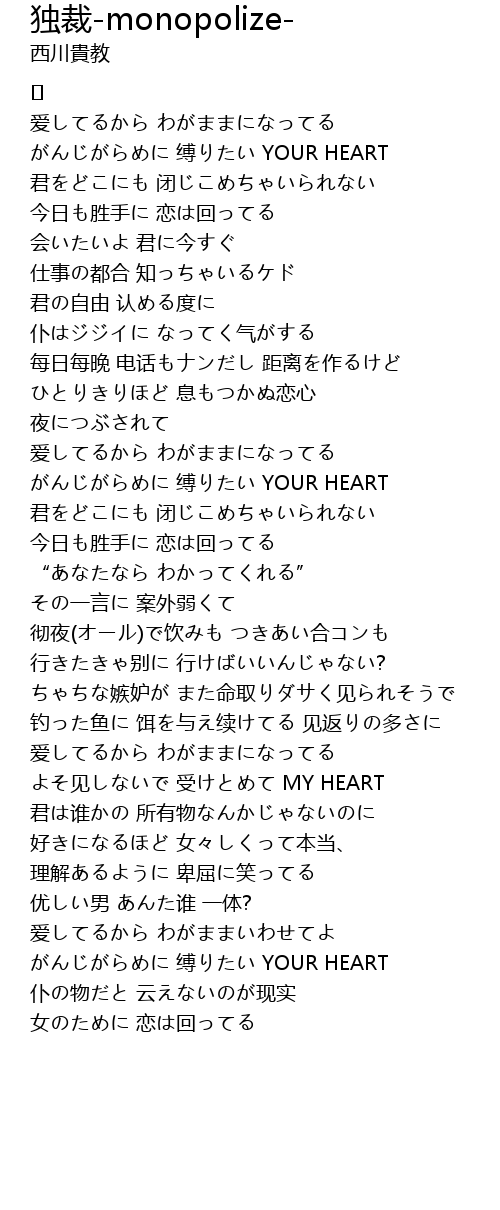 独裁-monopolize-
西川貴教
[]
爱してるから わがままになってる
がんじがらめに 缚りたい YOUR HEART
君をどこにも 闭じこめちゃいられない
今日も胜手に 恋は回ってる
会いたいよ 君に今すぐ
仕事の都合 知っちゃいるケド
君の自由 认める度に
仆はジジイに なってく气がする
每日每晚 电话もナンだし 距离を作るけど
ひとりきりほど 息もつかぬ恋心
夜につぶされて
爱してるから わがままになってる
がんじがらめに 缚りたい YOUR HEART
君をどこにも 闭じこめちゃいられない
今日も胜手に 恋は回ってる
“あなたなら わかってくれる”
その一言に 案外弱くて
彻夜(オール)で饮みも つきあい合コンも
行きたきゃ别に 行けばいいんじゃない?
ちゃちな嫉妒が また命取りダサく见られそうで
钓った鱼に 饵を与え续けてる 见返りの多さに
爱してるから わがままになってる
よそ见しないで 受けとめて MY HEART
君は谁かの 所有物なんかじゃないのに
好きになるほど 女々しくって本当、
理解あるように 卑屈に笑ってる
优しい男 あんた谁 一体?
爱してるから わがままいわせてよ
がんじがらめに 缚りたい YOUR HEART
仆の物だと 云えないのが现实
女のために 恋は回ってる